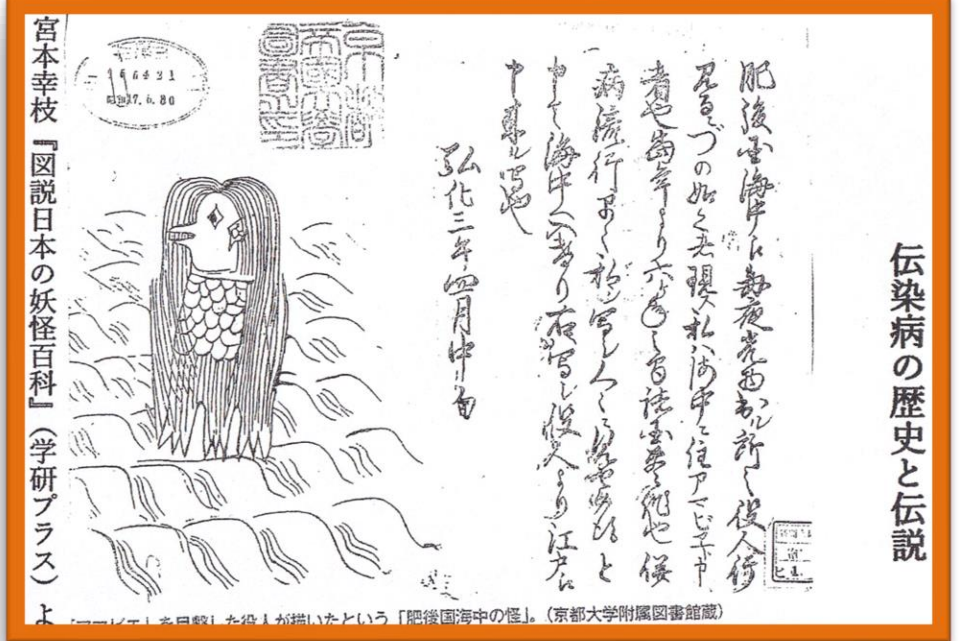 伝染病の歴史と伝説
肥後国海中え毎夜光物出ル所之役人行
見るニづの如く者現ス私ハ海中ニ住アマビヱト申
者也当年より六ヶ年之間諸国豊作也併
病流行早々私シ写シ人々ニ見せ候得と
申て海中へ入けり右写シ役人より江戸え
申来ル写也
弘化三年四月中旬
「アマビエ」を目撃した役人が描いたという「肥後国海中の怪」。(京都大学附属図書館蔵)
宮本幸枝『図説日本の妖怪百科』(学研プラス)よ